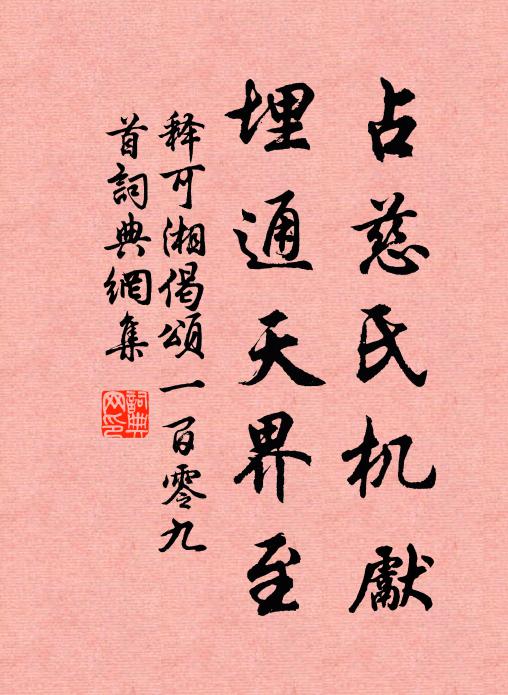 占慈氏机獻
埋通天界至
释可湘偈頌一百零九
首詞典網集
詞典
网印